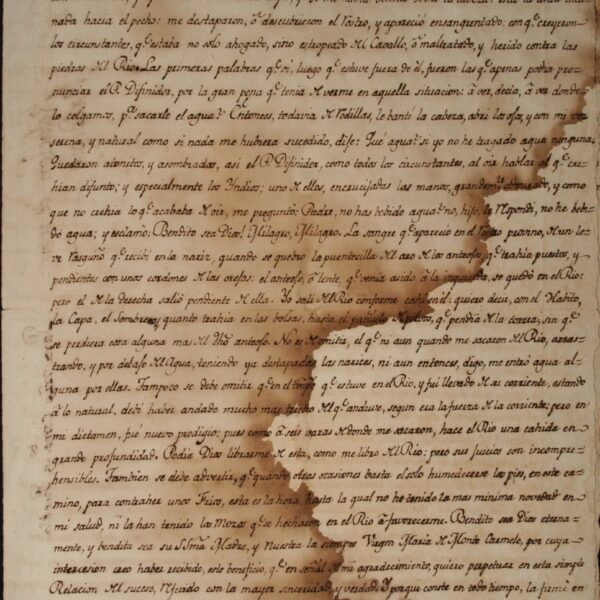 nada hacia el pecho: me destaparon, ó descubrieron el rostro, y apareció ensangrentado: con q.e creyeron
los circunstantes, q.e estaba no solo ahogado, sino estropeado del Cavallo, ó maltratado, y herido contra las
piedras del Rio. Las primeras palabras q.e oí, luego q.e estuve fuera de él, fueron las q.e apenas podia pro-
nunciar el P. Difinidor, por la gran pena q.e tenia de verme en aquella situacion: á ver, decia, á ver donde
lo colgamos, p.a sacarle el agua. Entonces, todavia de rodillas, levanté la cabeza, abrí los ojos, y con mi voz
serena, y natural como si nada me hubiera sucedido, dije: Qué agua? si yo no he tragado agua ninguna.
Quedaron atonitos, y asombrados, asi el P. Difinidor, como todos los circunstantes, al oir hablar al q.e cre-
hian difunto; y especialmente los Yndios; uno de ellos, encrucijadas las manos, grandem.te y como
que no crehia lo q.e acababa de oir, me preguntó: Padre, no has bebido agua? no, hijo, le respondí, no he bebi-
do agua; y esclamó: Bendito sea Dios! Milagro, Milagro. La sangre q.e apareció en el rostro provino, de un le-
ve rasguño q.e recibí en la nariz, quando se quebró la puentecilla del aro de los anteojos, q.e trahía puestos, y
pendientes con unos cordones de las orejas: el anteojo, ó lente, q.e venia asido á la izquierda, se quedó en el Rio:
pero el de la derecha salió pendiente de ella. Yo salí del Rio conforme cahí en él: quiero decir, con el Habito,
la Capa, el Sombrero, y quanto trahía en las bolsas, hasta el pañuelo de polvos, q.e pendia de la correa, sin q.e
se perdiera cosa alguna mas del dho anteojo. No es de omitir, el q.e ni aun quando me sacaron del Rio, arras-
trando, y por debajo del Agua, teniendo ya destapadas las narices, ni aun entonces, digo, me entró agua al-
guna por ellas. Tampoco se debe omitir q.e en el tmpo q.e estuve en el Rio, y fui llevado de su corriente, estando
á lo natural, debí haber andado mucho mas trecho del q.e anduve, segun era la fuerza de la corriente; pero en
mi dictamen, fué nuevo prodigio; pues como á seis varas de donde me sacaron, hace el Rio una cahida en
grande profundidad. Podia Dios librarme de esta, como me libró del Rio; pero sus juicios son incompre-
hensibles. Tambien se debe advertir, q.e quando otras ocasiones basta el solo humedecerse los pies, en este ca-
mino, para contraher unos Frios, esta es la hora, hasta la qual no he tenido la mas minima novedad en
mi salud, ni la han tenido los Mozos q.e se hecharon en el Rio á favorecerme. Bendito sea Dios eterna-
mente, y bendita sea su SSma Madre, y Nuestra la siempre Virgen Maria de Monte Carmelo, por cuya
intercesion creo haber recibido, este beneficio, q.e en señal de mi agradecimiento, quiero perpetuar en esta simple
Relacion del suceso, referido con la mayor sinceridad, y verdad. Y porque conste en todo tiempo, la firmé en